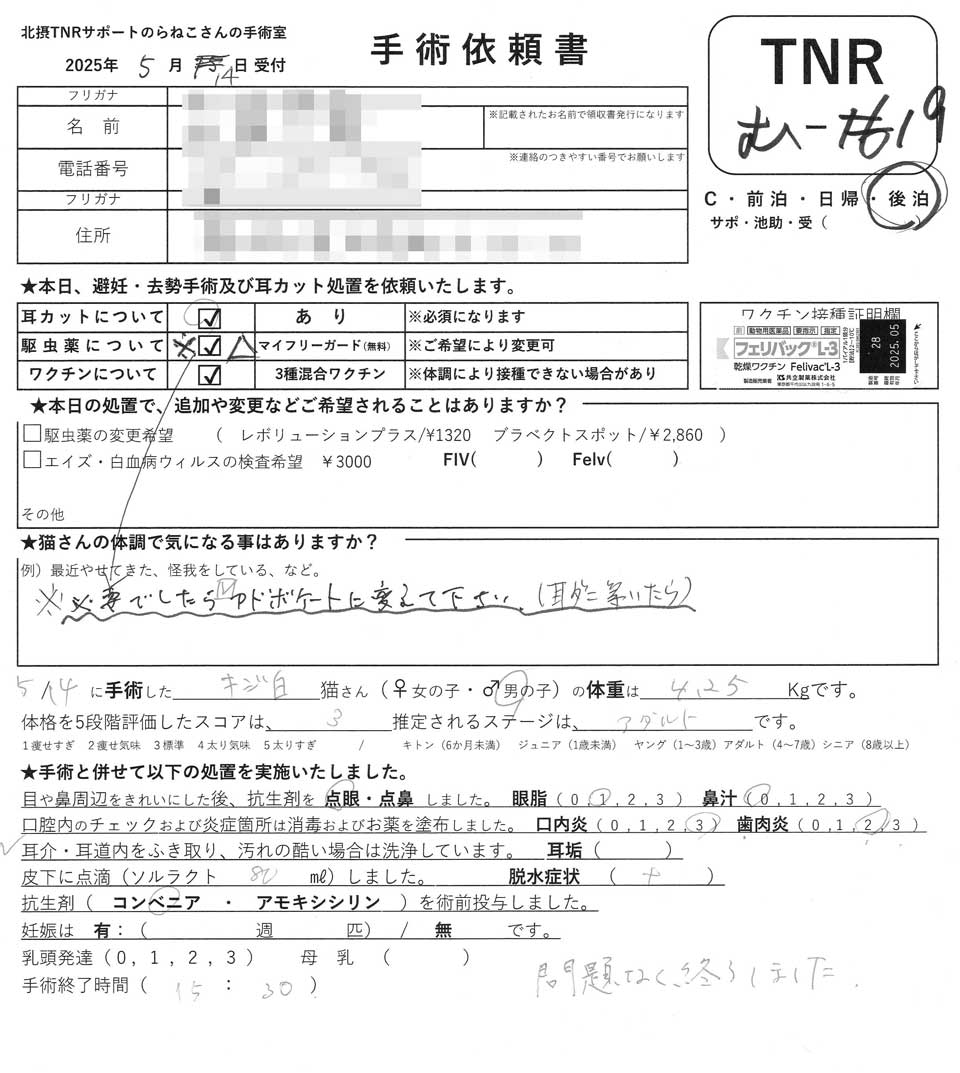 北摂TNRサポートのらねこさんの手術室
手術依頼書
2025年 5 月 14 日 受付
TNR
むヘーたも19
C・前泊・日帰・後泊
サポ・池助・受（
フリガナ
名 前
※記載されたお名前で領収書発行になります
電話番号
※連絡のつきやすい番号でお願いします
フリガナ
住所
★本日、避妊・去勢手術及び耳カット処置を依頼いたします。
耳カットについて ☑ あ り ※必須になります
駆虫薬について ※ ☑ △ マイフリーガード(無料) ※ご希望により変更可
ワクチンについて ☑ 3種混合ワクチン ※体調により接種できない場合があり
ワクチン接種証明欄
劇 動物用医薬品 要指示 指定
フェリバック®L-3
乾燥ワクチン Felivac®L-3
製造販売業者 KS共立製薬株式会社
28
2025.05
★本日の処置で、追加や変更などご希望されることはありますか？
□駆虫薬の変更希望 （ レボリューションプラス/¥1320 ブラベクトスポット/￥2,860 ）
□エイズ・白血病ウィルスの検査希望 ￥3000 FIV( ) Felv( )
その他
★猫さんの体調で気になる事はありますか？
例）最近やせてきた、怪我をしている、など。
※必要でしたらアドボケートに変えて下さい。(耳ダニ等いたら)
5/14 に手術した キジ白 猫さん（♀女の子・♂男の子）の体重は 4.25 Kgです。
体格を5段階評価したスコアは、 3 推定されるステージは、 アダルト です。
1痩せすぎ 2痩せ気味 3標準 4太り気味 5太りすぎ / キトン（6か月未満） ジュニア（1歳未満） ヤング（1～3歳）アダルト（4～7歳）シニア（8歳以上）
★手術と併せて以下の処置を実施いたしました。
目や鼻周辺をきれいにした後、抗生剤を 点眼・点鼻 しました。 眼脂（0,1,2,3） 鼻汁（0,1,2,3）
口腔内のチェックおよび炎症箇所は消毒およびお薬を塗布しました。 口内炎（0,1,2,3） 歯肉炎（0,1,2,3）
耳介・耳道内をふき取り、汚れの酷い場合は洗浄しています。 耳垢（ ）
皮下に点滴（ソルラクト 80 ㎖）しました。 脱水症状 （ + ）
抗生剤（ コンベニア ・ アモキシシリン ）を術前投与しました。
妊娠は 有：（ 週 匹） / 無 です。
乳頭発達（0,1,2,3） 母 乳 （ ）
手術終了時間（ 15 ： 30 ）
問題なく終了しました。